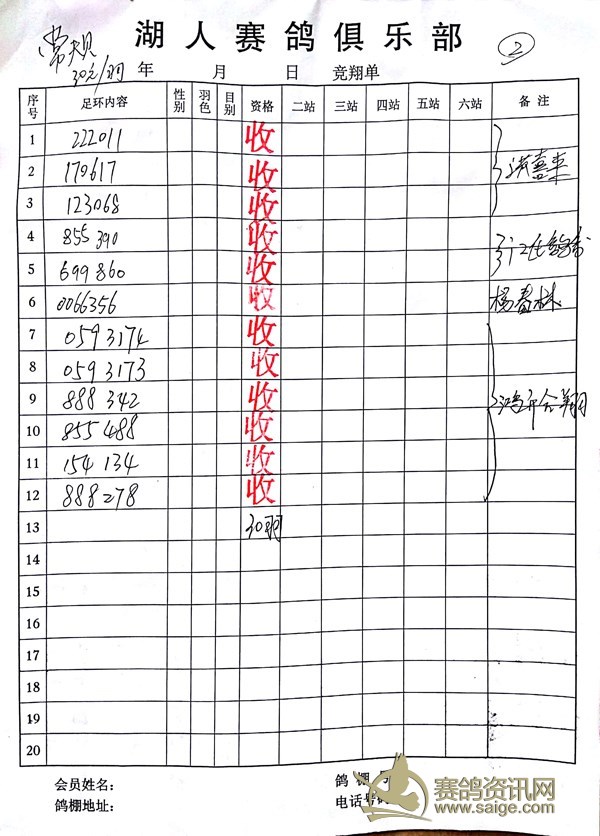 湖人赛鸽俱乐部
常规
②
30元/羽 年 月 日 竞翔单
序号 足环内容 性别 羽色 目别 资格 二站 三站 四站 五站 六站 备注
1 222011 收
2 170617 收 洪喜来
3 123068 收
4 855390 收
5 699860 收
6 0066356 收 杨春林
7 0593174 收
8 0593173 收
9 888342 收 鸿升合翔
10 855488 收
11 154134 收
12 888278 收
13 30羽
14
15
16
17
18
19
20
会员姓名: 鸽棚号
鸽棚地址: 电话号码
赛鸽资讯网
www.saige.com